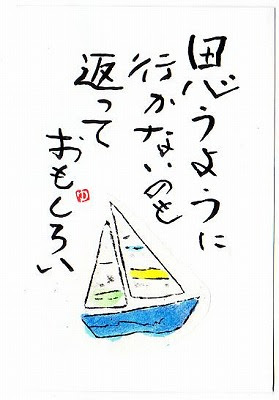 思うように
行かないのも
返って
おもしろい
ゆ